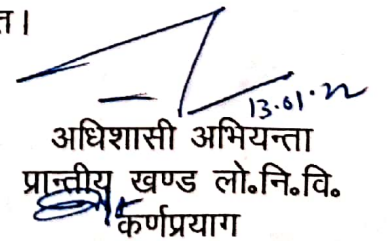 त।
13.01.22
अधिशासी अभियन्ता
प्रान्तीय खण्ड लो॰नि॰वि॰
कर्णप्रयाग